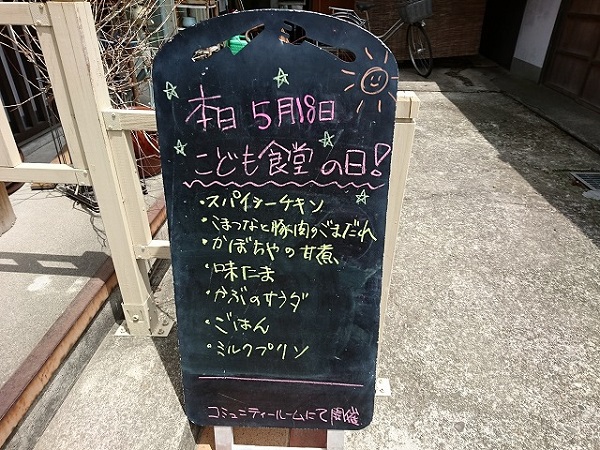 本日 5月18日
こども食堂の日!
・スパイシーチキン
・こまつなと豚肉のごまだれ
・かぼちゃの甘煮
・味たま
・かぶのサラダ
・ごはん
・ミルクプリン
コミュニティールームにて開催